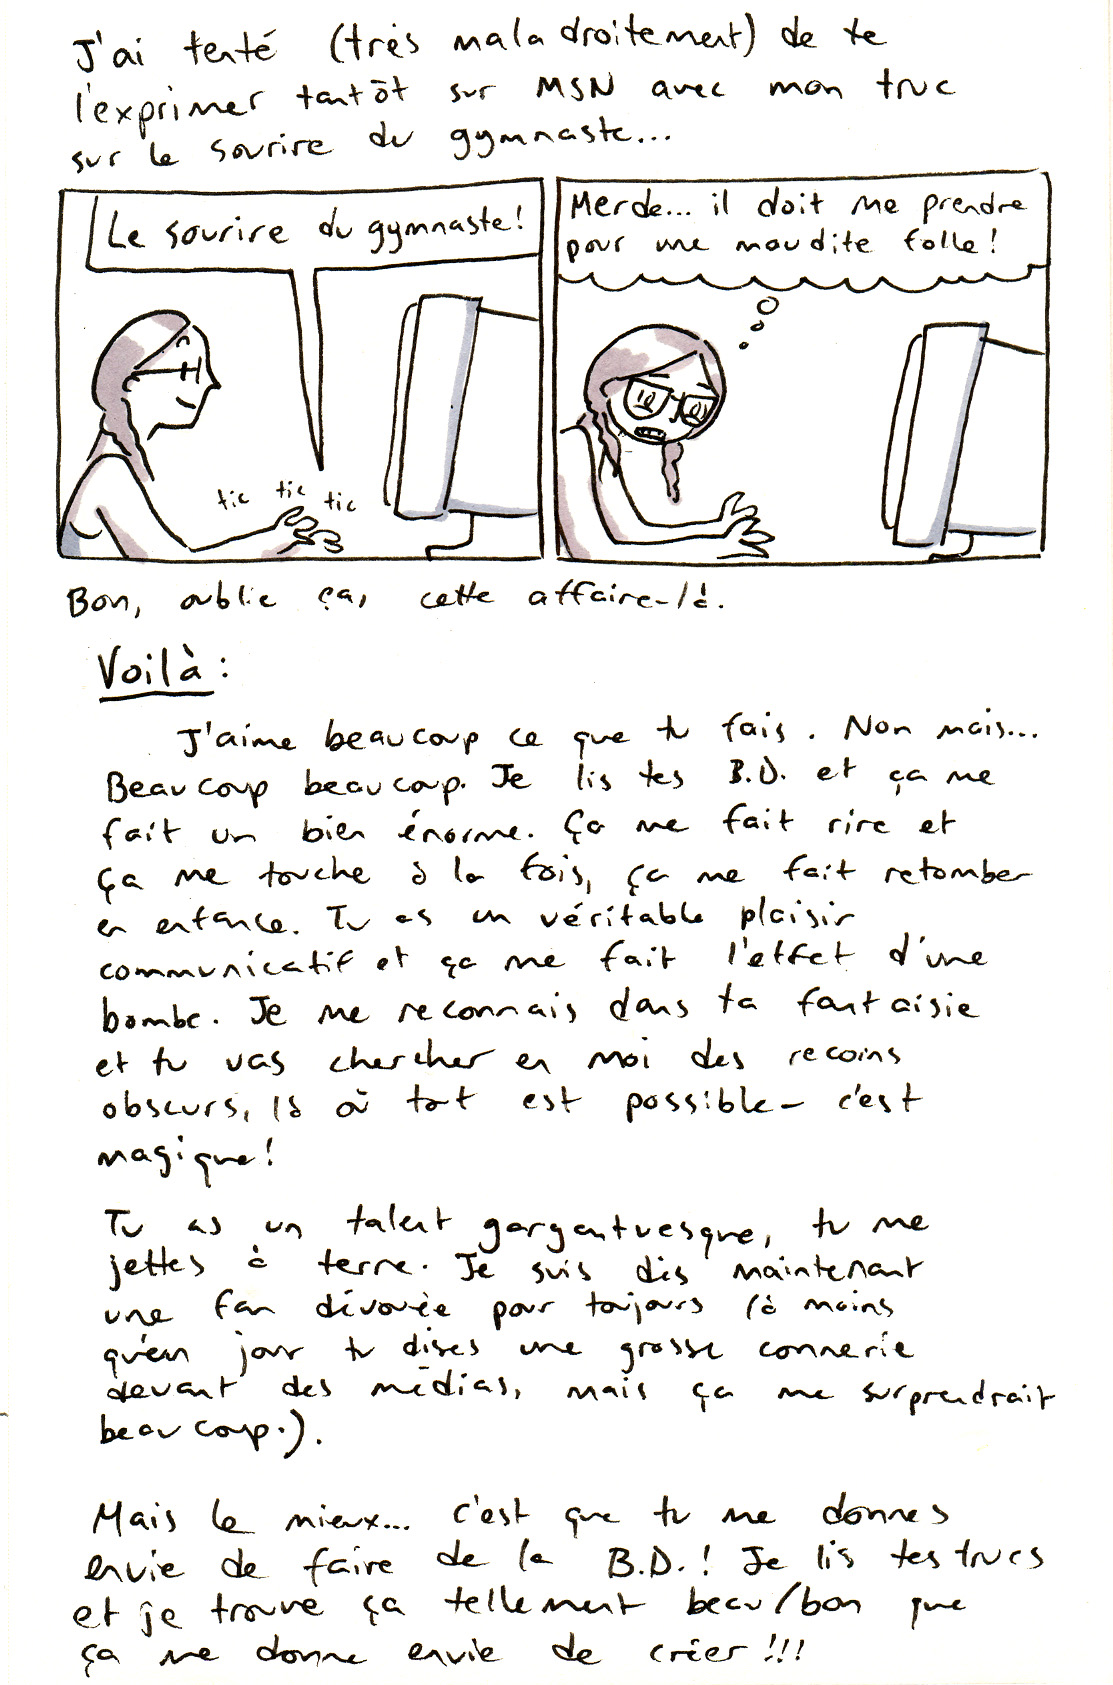 J'ai tenté (très maladroitement) de te
l'exprimer tantôt sur MSN avec mon truc
sur le sourire du gymnaste...
Le sourire du gymnaste!
tic tic tic
Merde... il doit me prendre
pour une maudite folle!
Bon, oublie ça, cette affaire-là.
Voilà:
J'aime beaucoup ce que tu fais. Non mais...
Beaucoup beaucoup. Je lis tes B.D. et ça me
fait un bien énorme. Ça me fait rire et
ça me touche à la fois, ça me fait retomber
en enfance. Tu as un véritable plaisir
communicatif et ça me fait l'effet d'une
bombe. Je me reconnais dans ta fantaisie
et tu vas chercher en moi des recoins
obscurs, là où tout est possible - c'est
magique!
Tu as un talent gargantuesque, tu me
jettes à terre. Je suis dès maintenant
une fan dévouée pour toujours (à moins
qu'un jour tu dises une grosse connerie
devant des médias, mais ça me surprendrait
beaucoup.).
Mais le mieux... c'est que tu me donnes
envie de faire de la B.D.! Je lis tes trucs
et je trouve ça tellement beau/bon que
ça me donne envie de créer!!!